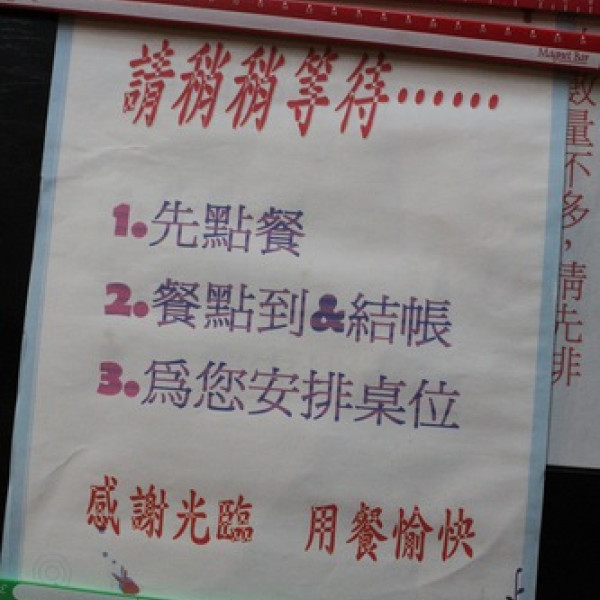 Magnet Bar
請稍稍等待……
1.先點餐
2.餐點到&結帳
3.為您安排桌位
感謝光臨 用餐愉快
數量不多，請先排